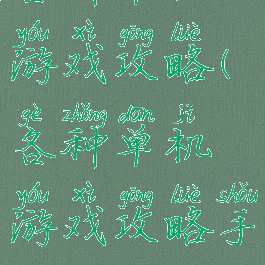 yóu xì gōng lüè
游戏攻略(
gè zhǒng dān jī
各种单机
yóu xì gōng lüè shǒu
游戏攻略手